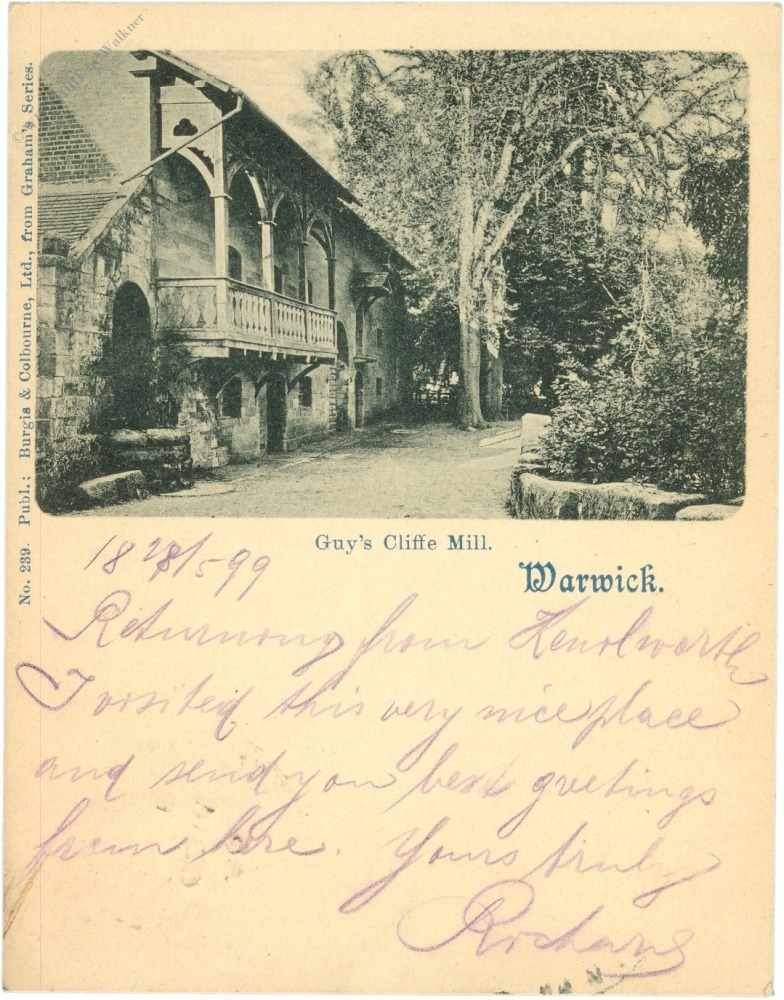 No. 239. Publ.: Burgis & Colbourne, Ltd., from Graham's Series.
Guy's Cliffe Mill.
Warwick.
18 28/5 99
Returning from Kenolworth
I visited this very nice place
and send you best greetings
from here. Yours truly
Richard